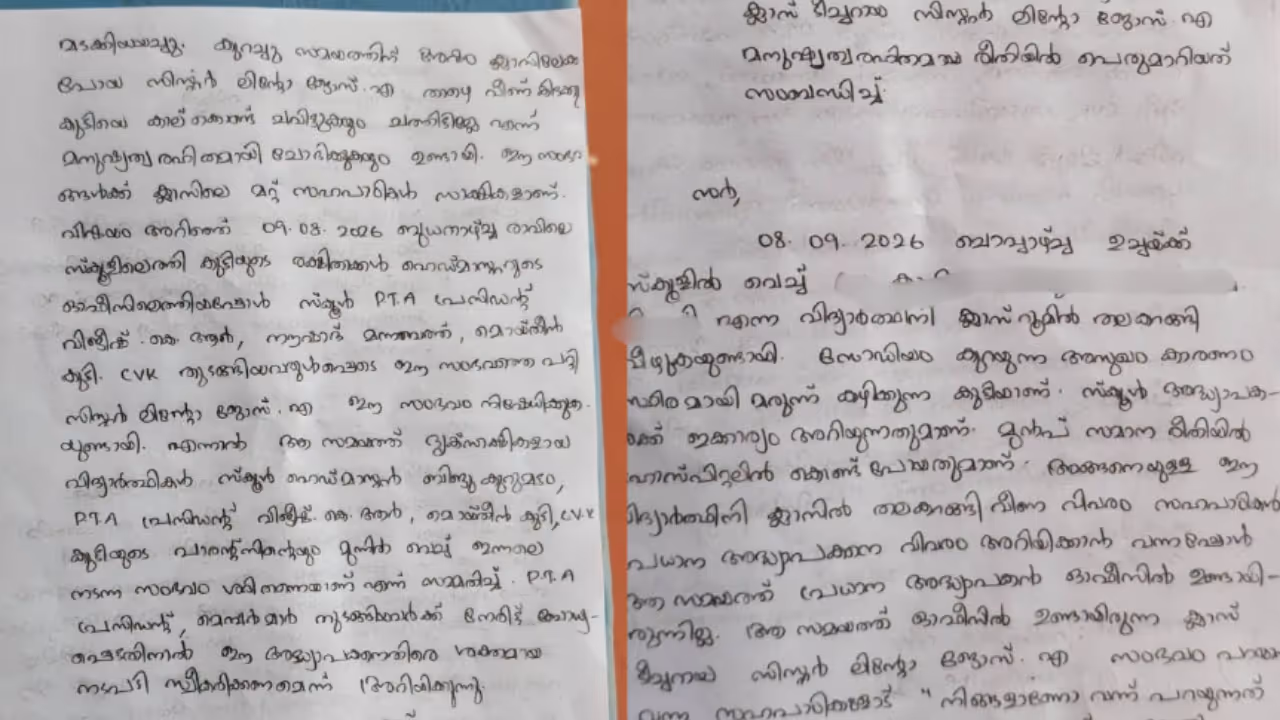 മടക്കിയയച്ചു. കുറച്ചു സമയത്തിന് ശേഷം ക്ലാസിലേക്ക്
പോയ സിസ്റ്റർ ലിന്റോ ജോസ്. എ താഴെ വീണ് കിടക്കു
കുട്ടിയെ കാല് കൊണ്ട് ചവിട്ടുകയും ചത്തിട്ടില്ലേ എന്ന്
മനുഷ്യത്വ രഹിതമായി ചോദിക്കുകയും ഉണ്ടായി. ഈ സംഭവ
ങ്ങൾക്ക് ക്ലാസിലെ മറ്റ് സഹപാഠികൾ സാക്ഷികളാണ്.
വിഷയം അറിഞ്ഞ് 09.08.2026 ബുധനാഴ്ച്ച രാവിലെ
സ്കൂളിലെത്തി കുട്ടിയുടെ രക്ഷിതാക്കൾ ഹെഡ്മാസ്റ്ററുടെ
ഓഫീസിലെത്തിയപ്പോൾ സ്കൂൾ P.T.A പ്രസിഡന്റ്
വിജീഷ്. കെ. ആർ, നൗഷാദ് മന്നബത്ത്, മൊയ്തീൻ
കുട്ടി. CVK തുടങ്ങിയവരുൾപ്പെടെ ഈ സംഭവത്തെ പറ്റി
സിസ്റ്റർ ലിന്റോ ജോസ്. എ ഈ സംഭവം നിഷേധിക്കുക-
യുണ്ടായി. എന്നാൽ ആ സമയത്ത് ദൃക്സാക്ഷികളായ
വിദ്യാർത്ഥികൾ സ്കൂൾ ഹെഡ്മാസ്റ്റർ ബിജു കുറുമടം,
P.T.A പ്രസിഡന്റ് വിജീഷ്. കെ. ആർ, മൊയ്തീൻ കുട്ടി, CVK
കുട്ടിയുടെ പാരന്റ്സിന്റെയും മുന്നിൽ വെച്ച് ഇന്നലെ
നടന്ന സംഭവം ശരിതന്നെയാണ് എന്ന് സമ്മതിച്ച്. P.T.A
പ്രസിഡന്റ്, മെമ്പർമാർ തുടങ്ങിയവർക്ക് നേരിട്ട് ബോധ്യ-
പ്പെട്ടതിനാൽ ഈ അദ്ധ്യാപകനെതിരെ ശക്തമായ
നടപടി സ്വീകരിക്കണമെന്ന് അറിയിക്കുന്നു.
ക്ലാസ് ടീച്ചറായ സിസ്റ്റർ ലിന്റോ ജോസ്. എ
മനുഷ്യത്വരഹിതമായ രീതിയിൽ പെരുമാറിയത്
സംബന്ധിച്ച്.
സർ,
08.09.2026 ചൊവ്വാഴ്ച്ച ഉച്ചയ്ക്ക്
സ്കൂളിൽ വെച്ച്
എന്ന വിദ്യാർത്ഥിനി ക്ലാസ് റൂമിൽ തലകറങ്ങി
വീഴുകയുണ്ടായി. സോഡിയം കുറയുന്ന അസുഖം കാരണം
സ്ഥിരമായി മരുന്ന് കഴിക്കുന്ന കുട്ടിയാണ്. സ്കൂൾ അദ്ധ്യാപക-
ർക്ക് ഇക്കാര്യം അറിയുന്നതുമാണ്. മുൻപ് സമാന രീതിയിൽ
ഹോസ്പിറ്റലിൽ കൊണ്ട് പോയതുമാണ് അങ്ങനെയുള്ള ഈ
വിദ്യാർത്ഥിനി ക്ലാസിൽ തലകറങ്ങി വീണ വിവരം സഹപാഠികൾ
പ്രധാന അദ്ധ്യാപകനെ വിവരം അറിയിക്കാൻ വന്നപ്പോൾ
ആ സമയത്ത് പ്രധാന അദ്ധ്യാപകൻ ഓഫീസിൽ ഉണ്ടായി-
രുന്നില്ല. ആ സമയത്ത് ഓഫീസിൽ ഉണ്ടായിരുന്ന ക്ലാസ്
ടീച്ചറായ സിസ്റ്റർ ലിന്റോ ജോസ്. എ സംഭവം പറയാൻ
വന്ന സഹപാഠികളോട് " നിങ്ങളാണോ വന്ന് പറയുന്നത്